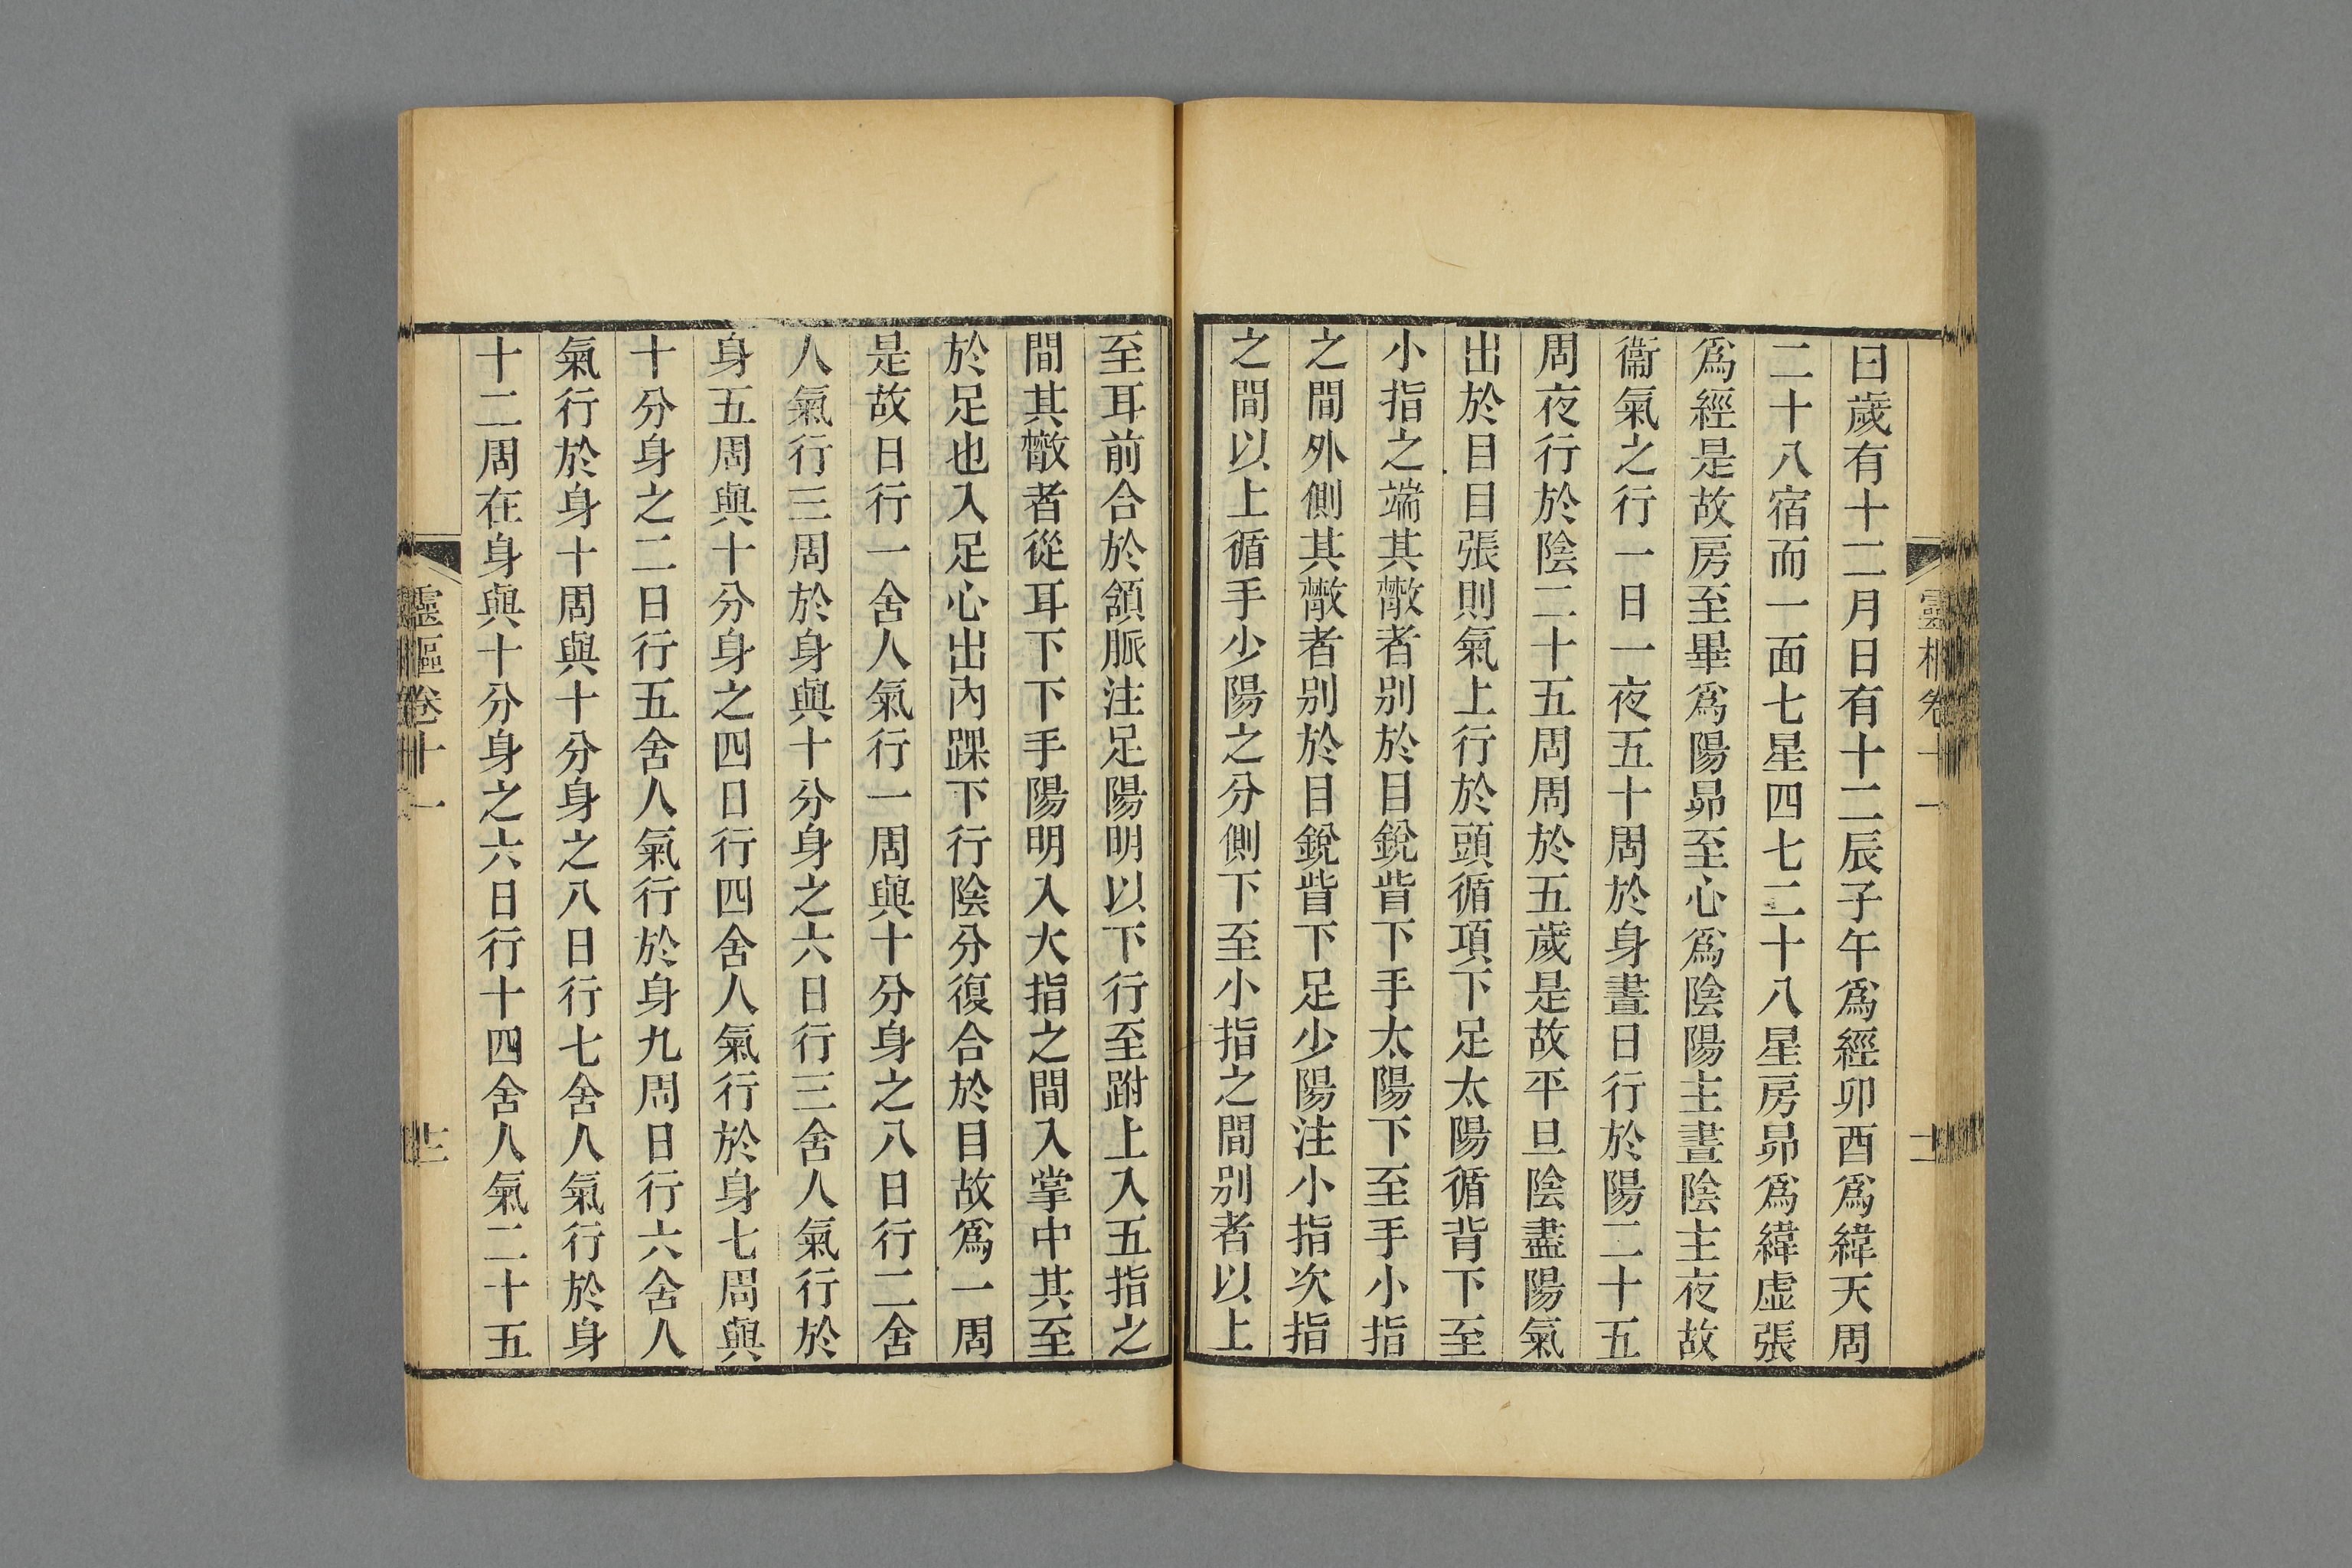 靈樞卷十一
十二
曰歲有十二月日有十二辰子午爲經卯酉爲緯天周
二十八宿而一面七星四七二十八星房昴爲緯虛張
爲經是故房至畢爲陽昴至心爲陰陽主晝陰主夜故
衞氣之行一日一夜五十周於身晝日行於陽二十五
周夜行於陰二十五周周於五歲是故平旦陰盡陽氣
出於目目張則氣上行於頭循項下足太陽循背下至
小指之端其散者別於目銳眥下手太陽下至手小指
之間外側其散者別於目銳眥下足少陽注小指次指
之間以上循手少陽之分側下至小指之間別者以上
至耳前合於頷脈注足陽明以下行至跗上入五指之
間其散者從耳下下手陽明入大指之間入掌中其至
於足也入足心出內踝下行陰分復合於目故爲一周
是故日行一舍人氣行一周與十分身之八日行二舍
人氣行三周於身與十分身之六日行三舍人氣行於
身五周與十分身之四日行四舍人氣行於身七周與
十分身之二日行五舍人氣行於身九周日行六舍人
氣行於身十周與十分身之八日行七舍人氣行於身
十二周在身與十分身之六日行十四舍人氣二十五
靈樞卷十一